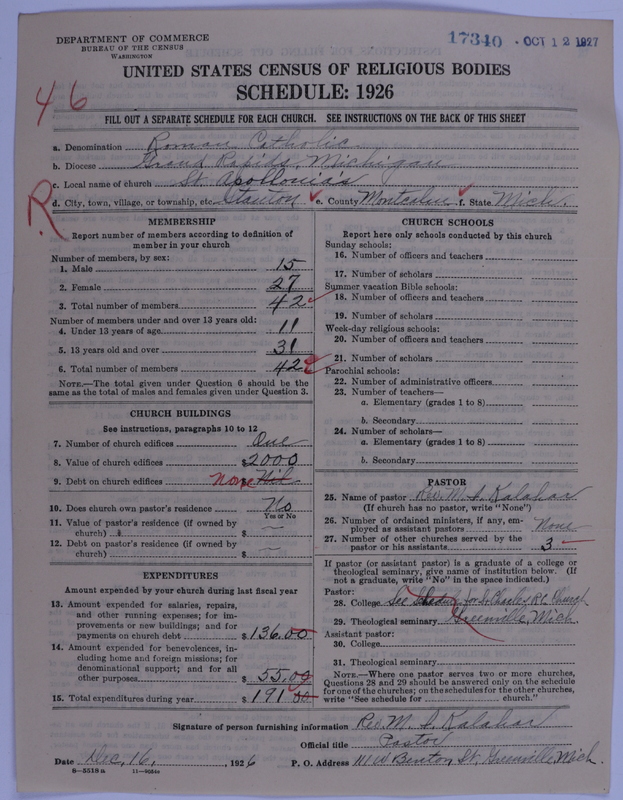 DEPARTMENT OF COMMERCE
BUREAU OF THE CENSUS
WASHINGTON
17340 · OCT 12 1927
UNITED STATES CENSUS OF RELIGIOUS BODIES
SCHEDULE: 1926
46
FILL OUT A SEPARATE SCHEDULE FOR EACH CHURCH. SEE INSTRUCTIONS ON THE BACK OF THIS SHEET
a. Denomination Roman Catholic
b. Diocese Grand Rapids, Michigan
c. Local name of church St. Apollonia's
d. City, town, village, or township, etc. Stanton e. County Montcalm f. State Mich.
R
MEMBERSHIP
Report number of members according to definition of
member in your church
Number of members, by sex:
1. Male 15
2. Female 27
3. Total number of members 42
Number of members under and over 13 years old:
4. Under 13 years of age 11
5. 13 years old and over 31
6. Total number of members 42
NOTE.—The total given under Question 6 should be the
same as the total of males and females given under Question 3.
CHURCH BUILDINGS
See instructions, paragraphs 10 to 12
7. Number of church edifices One
8. Value of church edifices $2000
9. Debt on church edifices none $ Nil
10. Does church own pastor's residence No
Yes or No
11. Value of pastor's residence (if owned by
church) $ —
12. Debt on pastor's residence (if owned by
church) $ —
EXPENDITURES
Amount expended by your church during last fiscal year
13. Amount expended for salaries, repairs,
and other running expenses; for im-
provements or new buildings; and for
payments on church debt $136.00
14. Amount expended for benevolences, in-
cluding home and foreign missions; for
denominational support; and for all
other purposes $55.00
15. Total expenditures during year $191 00
CHURCH SCHOOLS
Report here only schools conducted by this church
Sunday schools:
16. Number of officers and teachers
17. Number of scholars
Summer vacation Bible schools:
18. Number of officers and teachers
19. Number of scholars
Week-day religious schools:
20. Number of officers and teachers
21. Number of scholars
Parochial schools:
22. Number of administrative officers
23. Number of teachers—
a. Elementary (grades 1 to 8)
b. Secondary
24. Number of scholars—
a. Elementary (grades 1 to 8)
b. Secondary
PASTOR
25. Name of pastor Rev. M. S. Kalahar
(If church has no pastor, write "None")
26. Number of ordained ministers, if any, em-
ployed as assistant pastors None
27. Number of other churches served by the
pastor or his assistants 3
If pastor (or assistant pastor) is a graduate of a college or
theological seminary, give name of institution below. (If
not a graduate, write "No" in the space indicated.)
Pastor:
28. College See Schedule for St Charles R.C. Church
29. Theological seminary Greenville, Mich
Assistant pastor:
30. College
31. Theological seminary
NOTE.—Where one pastor serves two or more churches,
Questions 28 and 29 should be answered only on the schedule
for one of the churches; on the schedules for the other churches,
write "See schedule for church."
Signature of person furnishing information Rev. M. S. Kalahar
Official title Pastor
Date Dec, 16, 1926 P. O. Address 111 W Benton St, Greenville, Mich.
8—5518 a 11—9084a